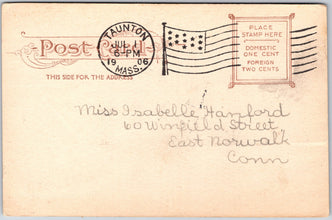 Post Card
THIS SIDE FOR THE ADDRESS
TAUNTON
JUL 11
6-PM
1906
MASS.
PLACE
STAMP HERE
DOMESTIC
ONE CENT
FOREIGN
TWO CENTS
Miss Isabelle Hanford
60 Winfield Street
East Norwalk
Conn